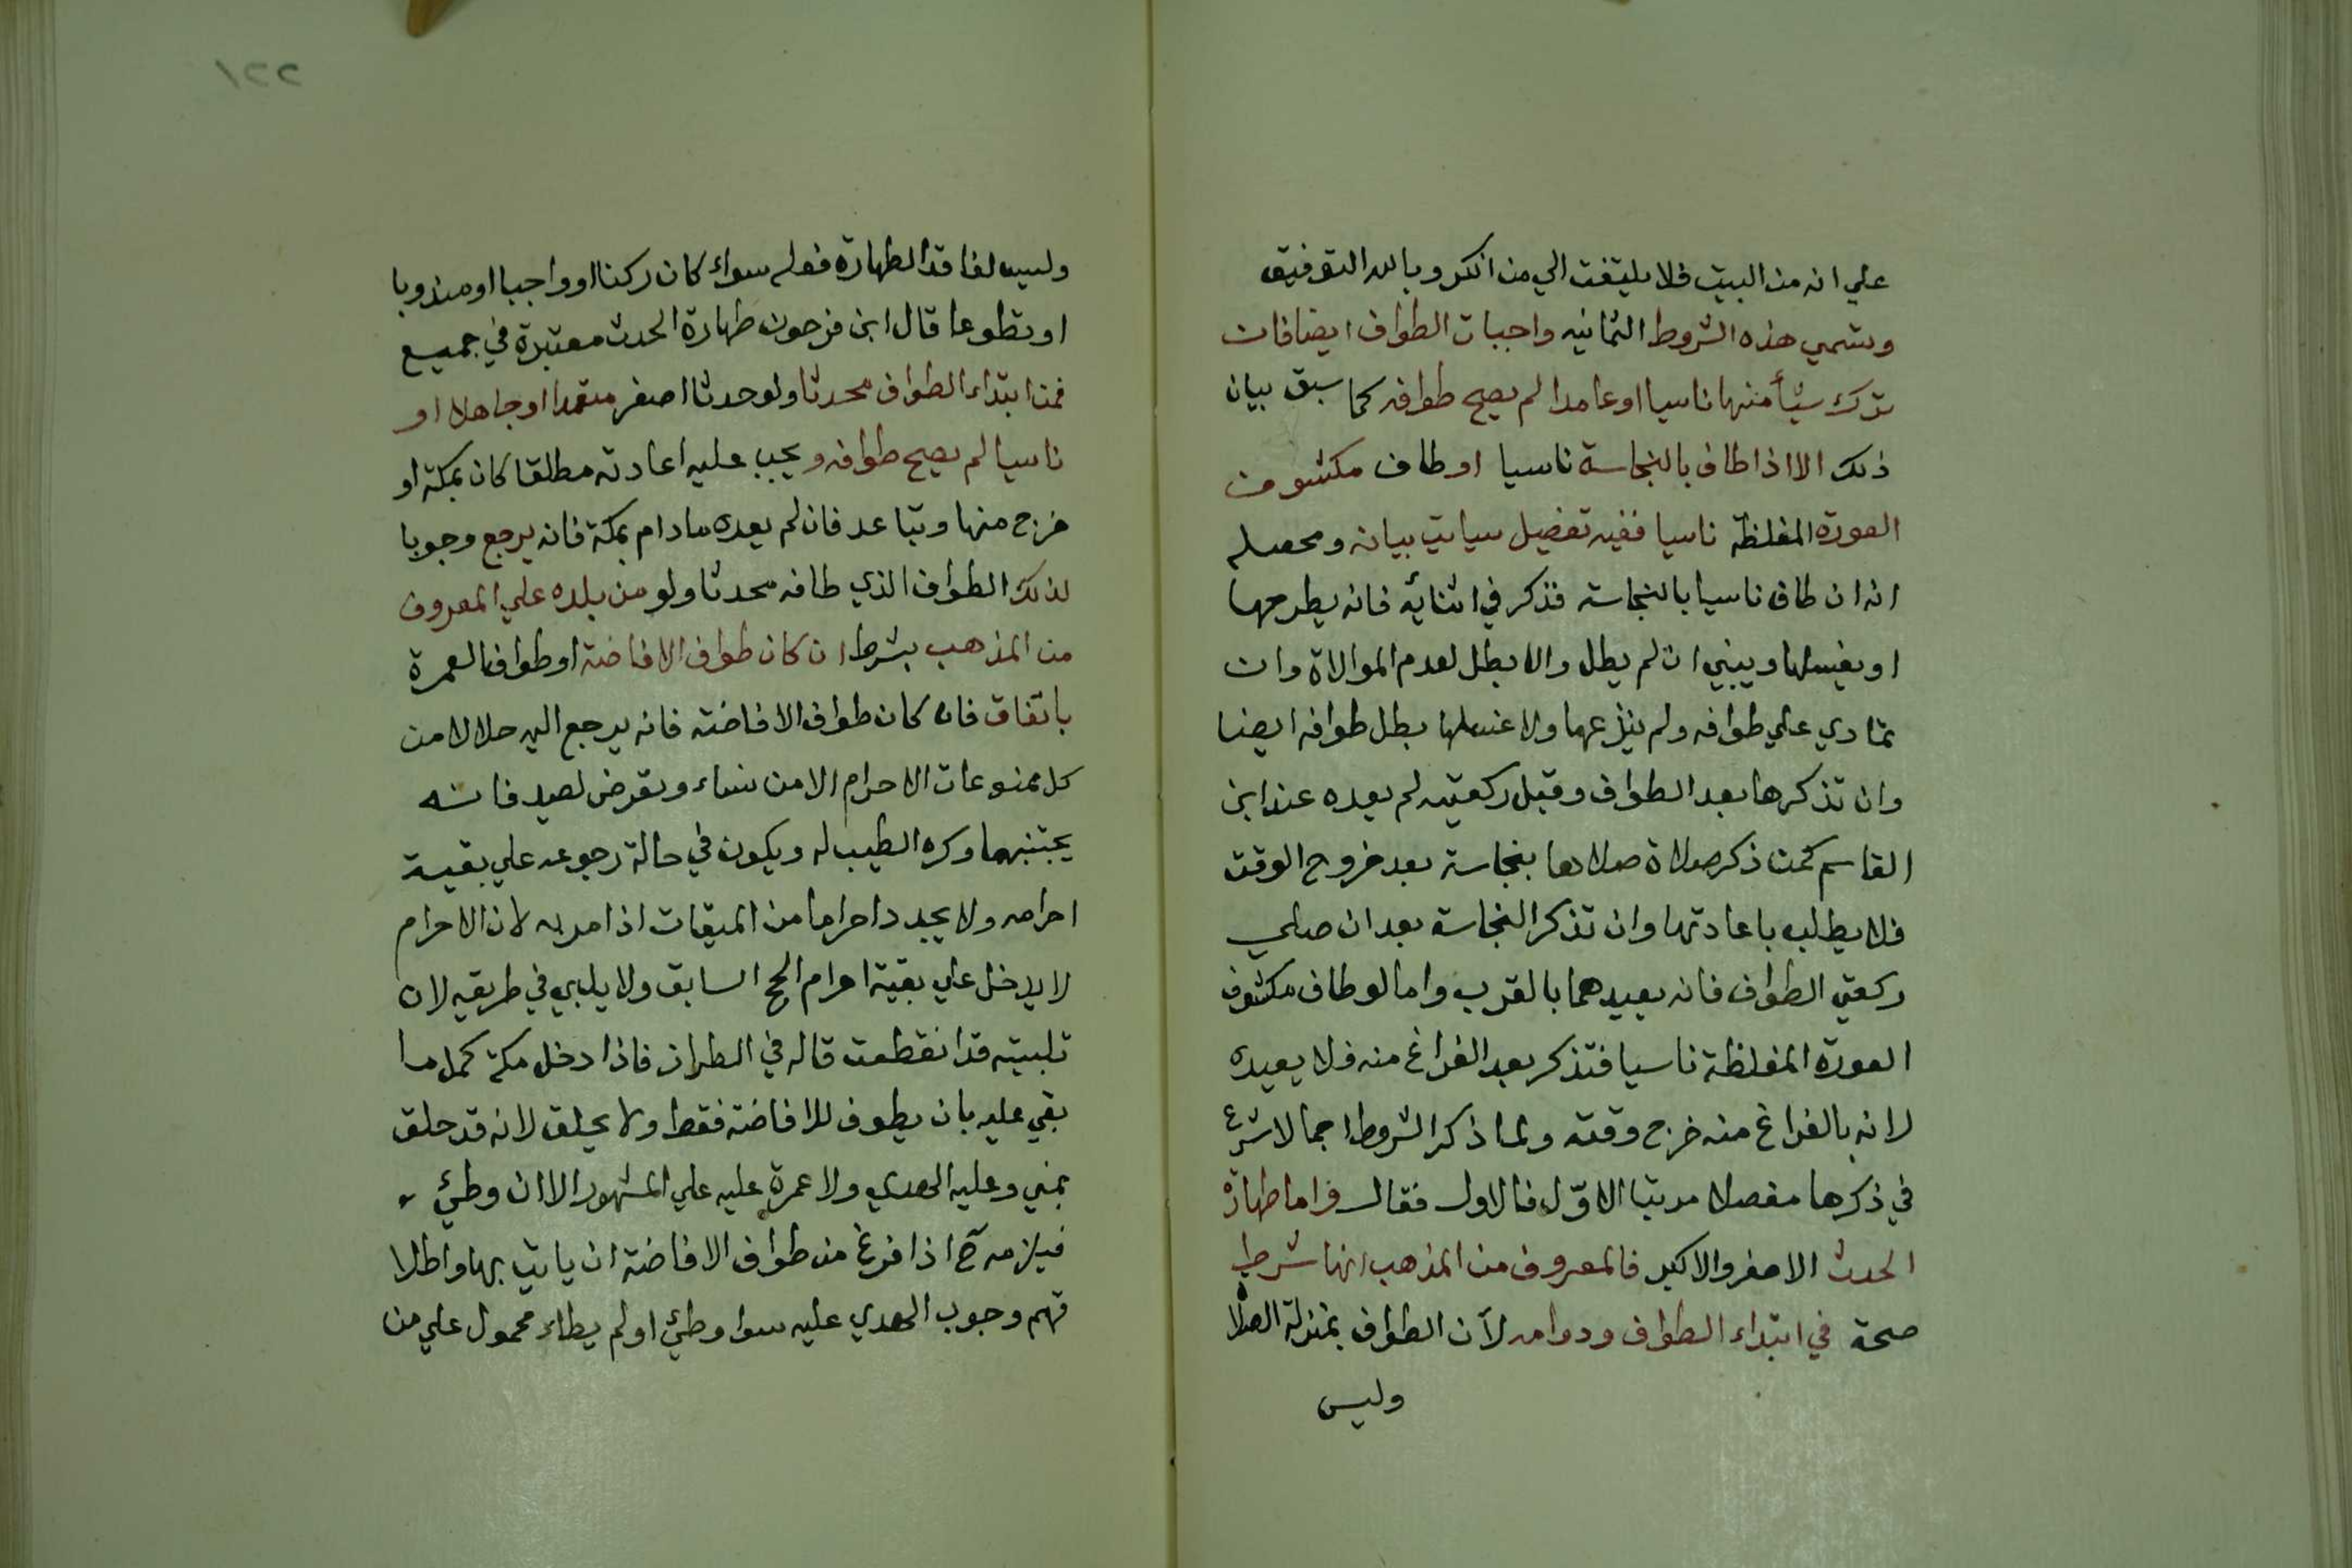 علي انه من البيت فلا يلتفت الي من انكر وبالله التوفيق
وتسمي هذه الشروط الثمانيه واجبات الطواف ايضا فان
ترك شيأ منها ناسيا او عامدا لم يصح طوافه كما سبق بيان
ذلك الا اذا طاف بالنجاسة ناسيا او طاف مكشوف
العورة المغلظة ناسيا ففيه تفصيل سياتي بيانه ومحصله
انه ان طاف ناسيا بالنجاسة فذكر في اثنائه فانه يطرحها
او يغسلها ويبني ان لم يطل والا بطل لعدم الموالاة وان
تمادي علي طوافه ولم ينزعها ولا غسلها بطل طوافه ايضا
وان تذكرها بعد الطواف وقبل ركعتيه لم يعده عند ابن
القاسم كمن ذكر صلاة صلاها بنجاسة بعد خروج الوقت
فلا يطلب باعادتها وان تذكر النجاسة بعد ان صلي
ركعتي الطواف فانه يعيدهما بالقرب واما لو طاف مكشوف
العورة المغلظة ناسيا فتذكر بعد الفراغ منه فلا يعيده
لانه بالفراغ منه خرج وقته ولما ذكر الشروط اجمالا شرع
في ذكرها مفصلا مرتبا الاوّل فالاول فقال فاما طهارة
الحدث الاصغر والاكبر فالمعروف من المذهب انها شرط
صحة في ابتداء الطواف ودوامه لان الطواف بمنزلة الصلاة
وليس
٢٢١
وليس لفاقد الطهارة فعله سواء كان ركنا او واجبا او مندوبا
او تطوعا قال ابن فرحون طهارة الحدث معتبرة في جميع
فمن ابتداء الطواف محدثا ولو حدثا اصغر متعمدا او جاهلا او
ناسيا لم يصح طوافه ويجب عليه اعادته مطلقا كان بمكة او
خرج منها وتباعد فان لم يعده ما دام بمكة فانه يرجع وجوبا
لذلك الطواف الذي طافه محدثا ولو من بلده علي المعروف
من المذهب بشرط ان كان طواف الافاضة او طواف العمرة
باتفاق فان كان طواف الافاضة فانه يرجع اليه حلالا من
كل ممنوعات الاحرام الا من نساء وتعرض لصيد فانه
يجتنبهما وكره الطيب له ويكون في حالة رجوعه علي بقية
احرامه ولا يجدد احراما من الميقات اذا مر به لان الاحرام
لا يدخل علي بقية احرام الحج السابق ولا يلبي في طريقه لان
تلبيته قد انقطعت قاله في الطراز فاذا دخل مكة كمل ما
بقي عليه بان يطوف للافاضة فقط ولا يحلق لانه قد حلق
بمني وعليه الهدي ولا عمرة عليه علي المشهور الا ان وطئ
فيلزمه ح اذا فرغ من طواف الافاضة ان ياتي بها واطلا
قهم وجوب الهدي عليه سوا وطئ او لم يطاء محمول علي من